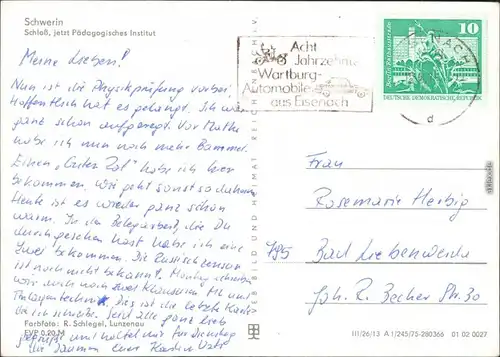 Schwerin
Schloß, jetzt Pädagogisches Institut
Meine Lieben!
Nun ist die Physikprüfung vorbei,
Hoffentlich hat es gelangt. Ich war
ganz schön aufgeregt. Vor Mathe
habe ich nun noch mehr Bammel.
Einen "Guten Rat" habe ich hier
bekommen. Wie geht sonst so daheim
Heute ist es wieder ganz schön
warm. In der Belegarbeit, die Du
durchgesehen hast habe ich eine
Zwei bekommen. Die Russischzensur
ist noch nicht bekannt. Montag schreiben
wir auch noch zwei Klausuren ML und
Anlagentechnik. Dies ist die letzte Karte
die ich schreibe. Seid alle ganz lieb
gegrüßt und haltet mir für Dienstag
die Daumen Eure Kardin
Farbfoto: R. Schlegel, Lunzenau
EVP 0,20 M
VEB BILD UND HEIMAT REICHENBACH I. V.
Acht
Jahrzehnte
Wartburg-
Automobile
aus Eisenach
NACH
d
10
DEUTSCHE DEMOKRATISCHE REPUBLIK
Frau
Rosemarie Herbig
795 Bad Liebenwerda
Joh. R. Becher Str. 30
III/26/13 A 1/245/75-280366 01 02 0027